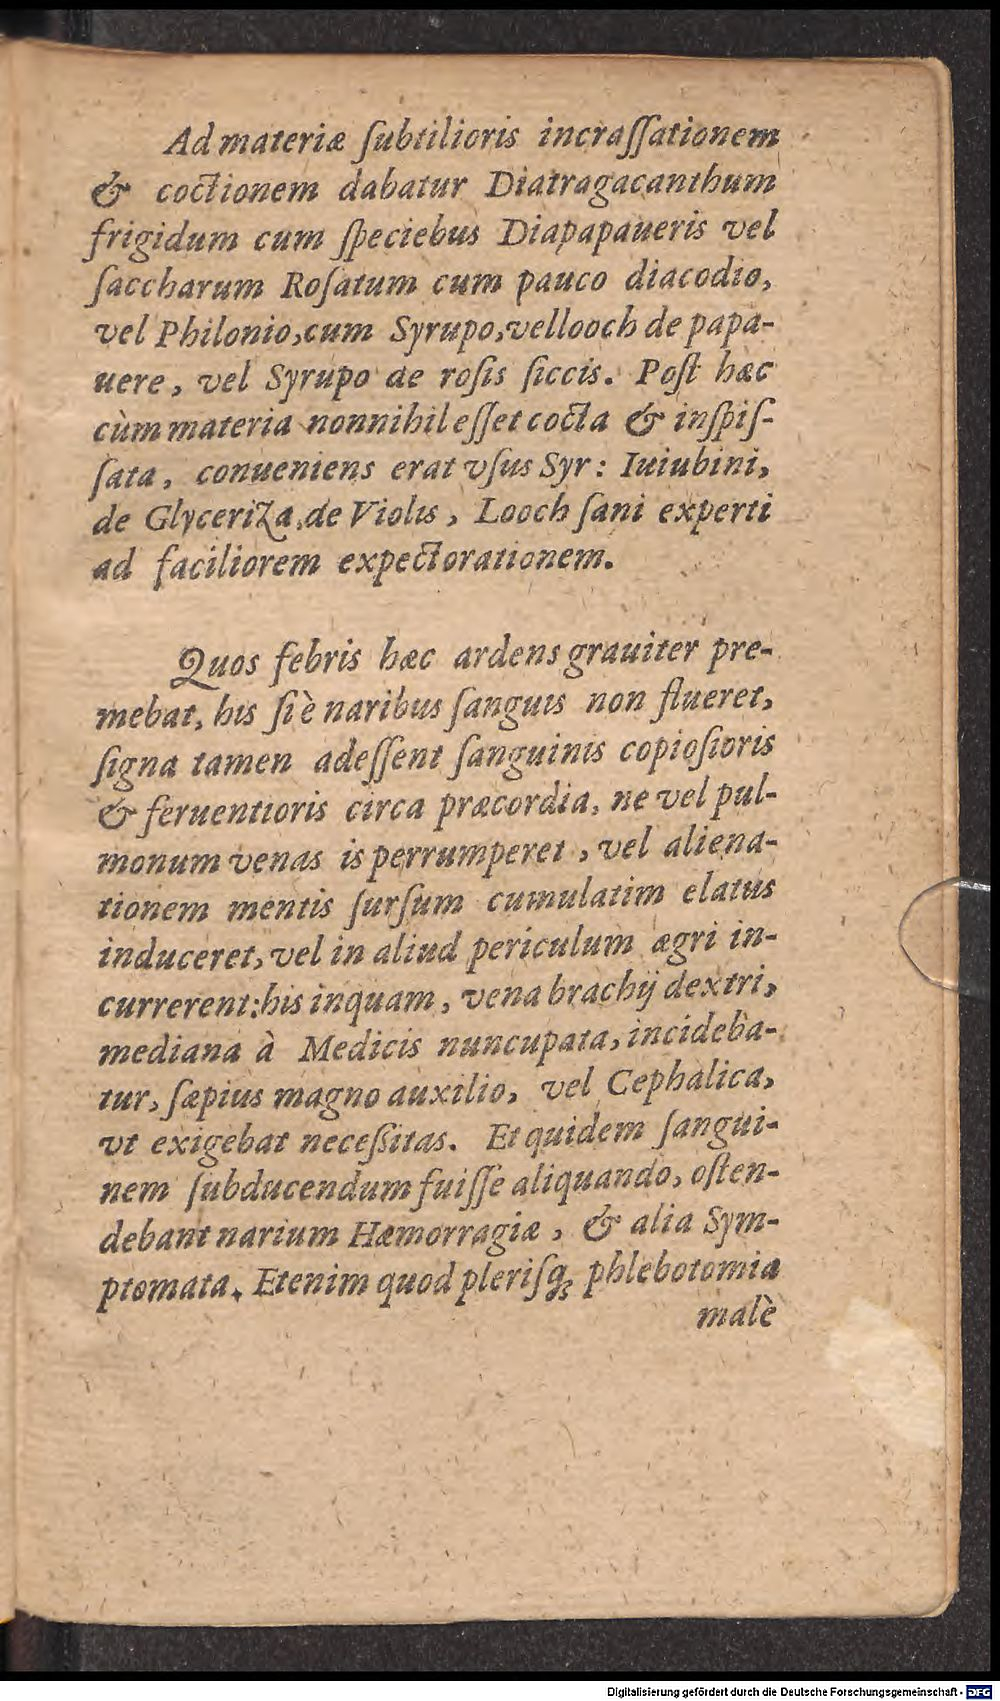 Ad materiæ ſubtilioris incraſſationem
& coctionem dabatur Diatragacanthum
frigidum cum ſpeciebus Diapapaueris vel
ſaccharum Roſatum cum pauco diacodio,
vel Philonio, cum Syrupo, vel looch de papa-
uere, vel Syrupo de roſis ſiccis. Poſt hæc
cùm materia nonnihil eſſet cocta & inſpiſ-
ſata, conueniens erat vſus Syr: Iuiubini,
de Glyceriza, de Violis, Looch ſani experti
ad faciliorem expectorationem.
Quos febris hæc ardens grauiter pre-
mebat, his ſi è naribus ſanguis non flueret,
ſigna tamen adeſſent ſanguinis copioſioris
& feruentioris circa præcordia, ne vel pul-
monum venas is perrumperet, vel aliena-
tionem mentis ſurſum cumulatim elatus
induceret, vel in aliud periculum ægri in-
currerent: his inquam, vena brachij dextri,
mediana à Medicis nuncupata, incideba-
tur, ſæpius magno auxilio, vel Cephalica,
vt exigebat neceſſitas. Et quidem ſangui-
nem ſubducendum fuiſſe aliquando, oſten-
debant narium Hæmorragiæ, & alia Sym-
ptomata. Etenim quod pleriſq; phlebotomia
malè
Digitalisierung gefördert durch die Deutsche Forschungsgemeinschaft - DFG